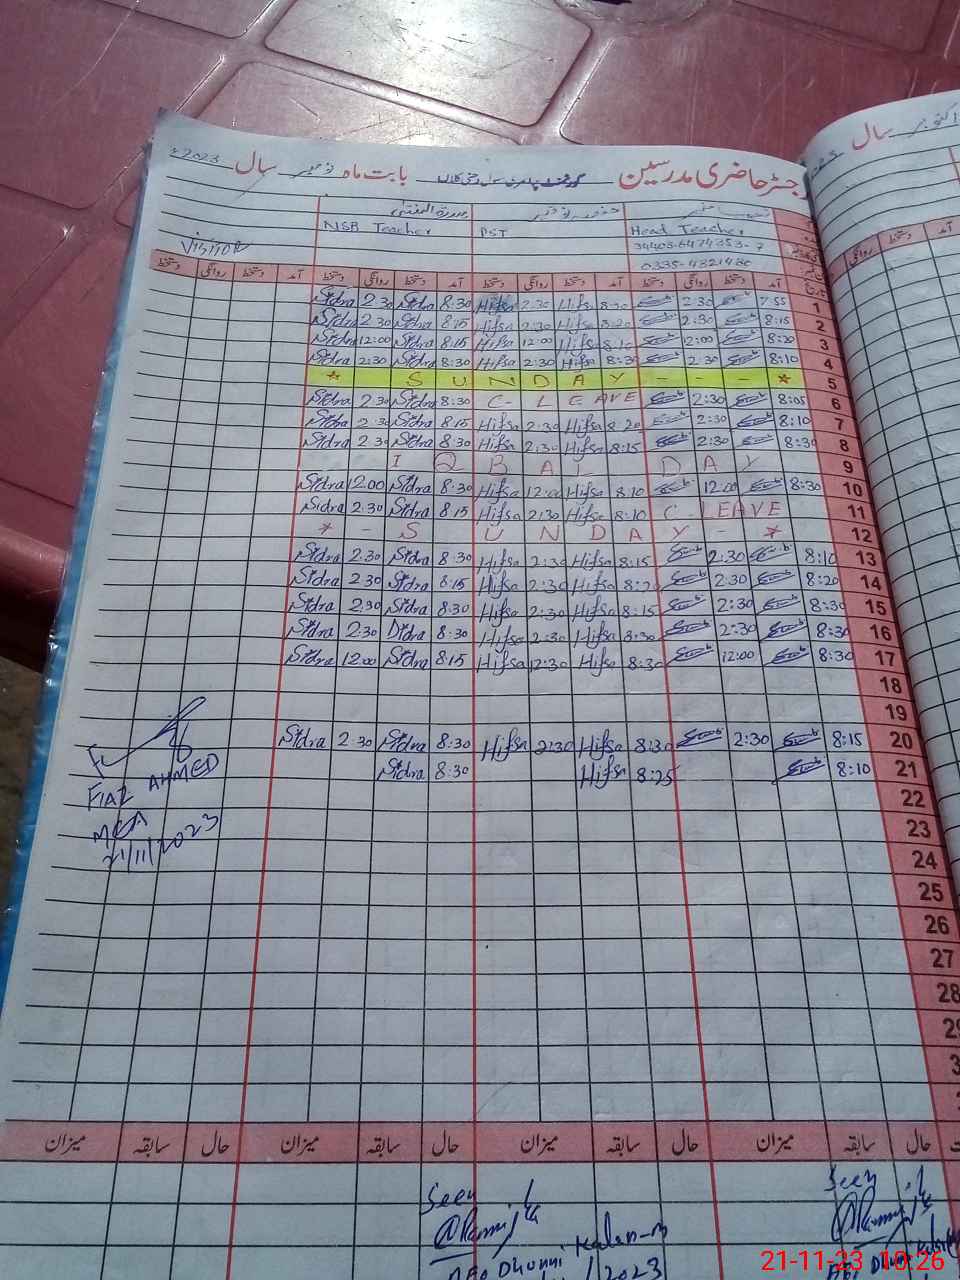 رجسٹر حاضری مدرسین گورنمنٹ پرائمری سکول دھنی کلاں بابت ماہ نومبر سال 2023ء
NSB Teacher PST Head Teacher
34403-6474353-7
VISITOR
0335-4321430
دستخط روانگی دستخط آمد دستخط روانگی دستخط آمد دستخط روانگی دستخط آمد دستخط روانگی دستخط آمد
Sidra 2:30 Sidra 8:30 Hifsa 2:30 Hifsa 8:30 2:30 7:55 1
Sidra 2:30 Sidra 8:15 Hifsa 2:30 Hifsa 8:20 2:30 8:15 2
Sidra 12:00 Sidra 8:15 Hifsa 12:00 Hifsa 8:10 12:00 8:30 3
Sidra 2:30 Sidra 8:30 Hifsa 2:30 Hifsa 8:30 2:30 8:10 4
* S U N D A Y - - - * 5
Sidra 2:30 Sidra 8:30 C-LEAVE 2:30 8:05 6
Sidra 2:30 Sidra 8:15 Hifsa 2:30 Hifsa 8:20 2:30 8:10 7
Sidra 2:30 Sidra 8:30 Hifsa 2:30 Hifsa 8:15 2:30 8:30 8
I Q B A L D A Y 9
Sidra 12:00 Sidra 8:30 Hifsa 12:00 Hifsa 8:10 12:00 8:30 10
Sidra 2:30 Sidra 8:15 Hifsa 2:30 Hifsa 8:10 C-LEAVE 11
* - S U N D A Y - * 12
Sidra 2:30 Sidra 8:30 Hifsa 2:30 Hifsa 8:15 2:30 8:10 13
Sidra 2:30 Sidra 8:15 Hifsa 2:30 Hifsa 8:20 2:30 8:20 14
Sidra 2:30 Sidra 8:30 Hifsa 2:30 Hifsa 8:15 2:30 8:30 15
Sidra 2:30 Didra 8:30 Hifsa 2:30 Hifsa 8:30 2:30 8:30 16
Sidra 12:00 Sidra 8:15 Hifsa 12:30 Hifsa 8:30 12:00 8:30 17
18
19
Sidra 2:30 Sidra 8:30 Hifsa 2:30 Hifsa 8:30 2:30 8:15 20
Sidra 8:30 Hifsa 8:25 8:10 21
FIAZ AHMED
MEA
21/11/2023
22
23
24
25
26
27
28
میزان سابقہ حال میزان سابقہ حال میزان سابقہ حال میزان سابقہ حال
Seen Seen
AEO Dhunni Kalan-m AEO Dhunni
2023
21-11-23 10:26